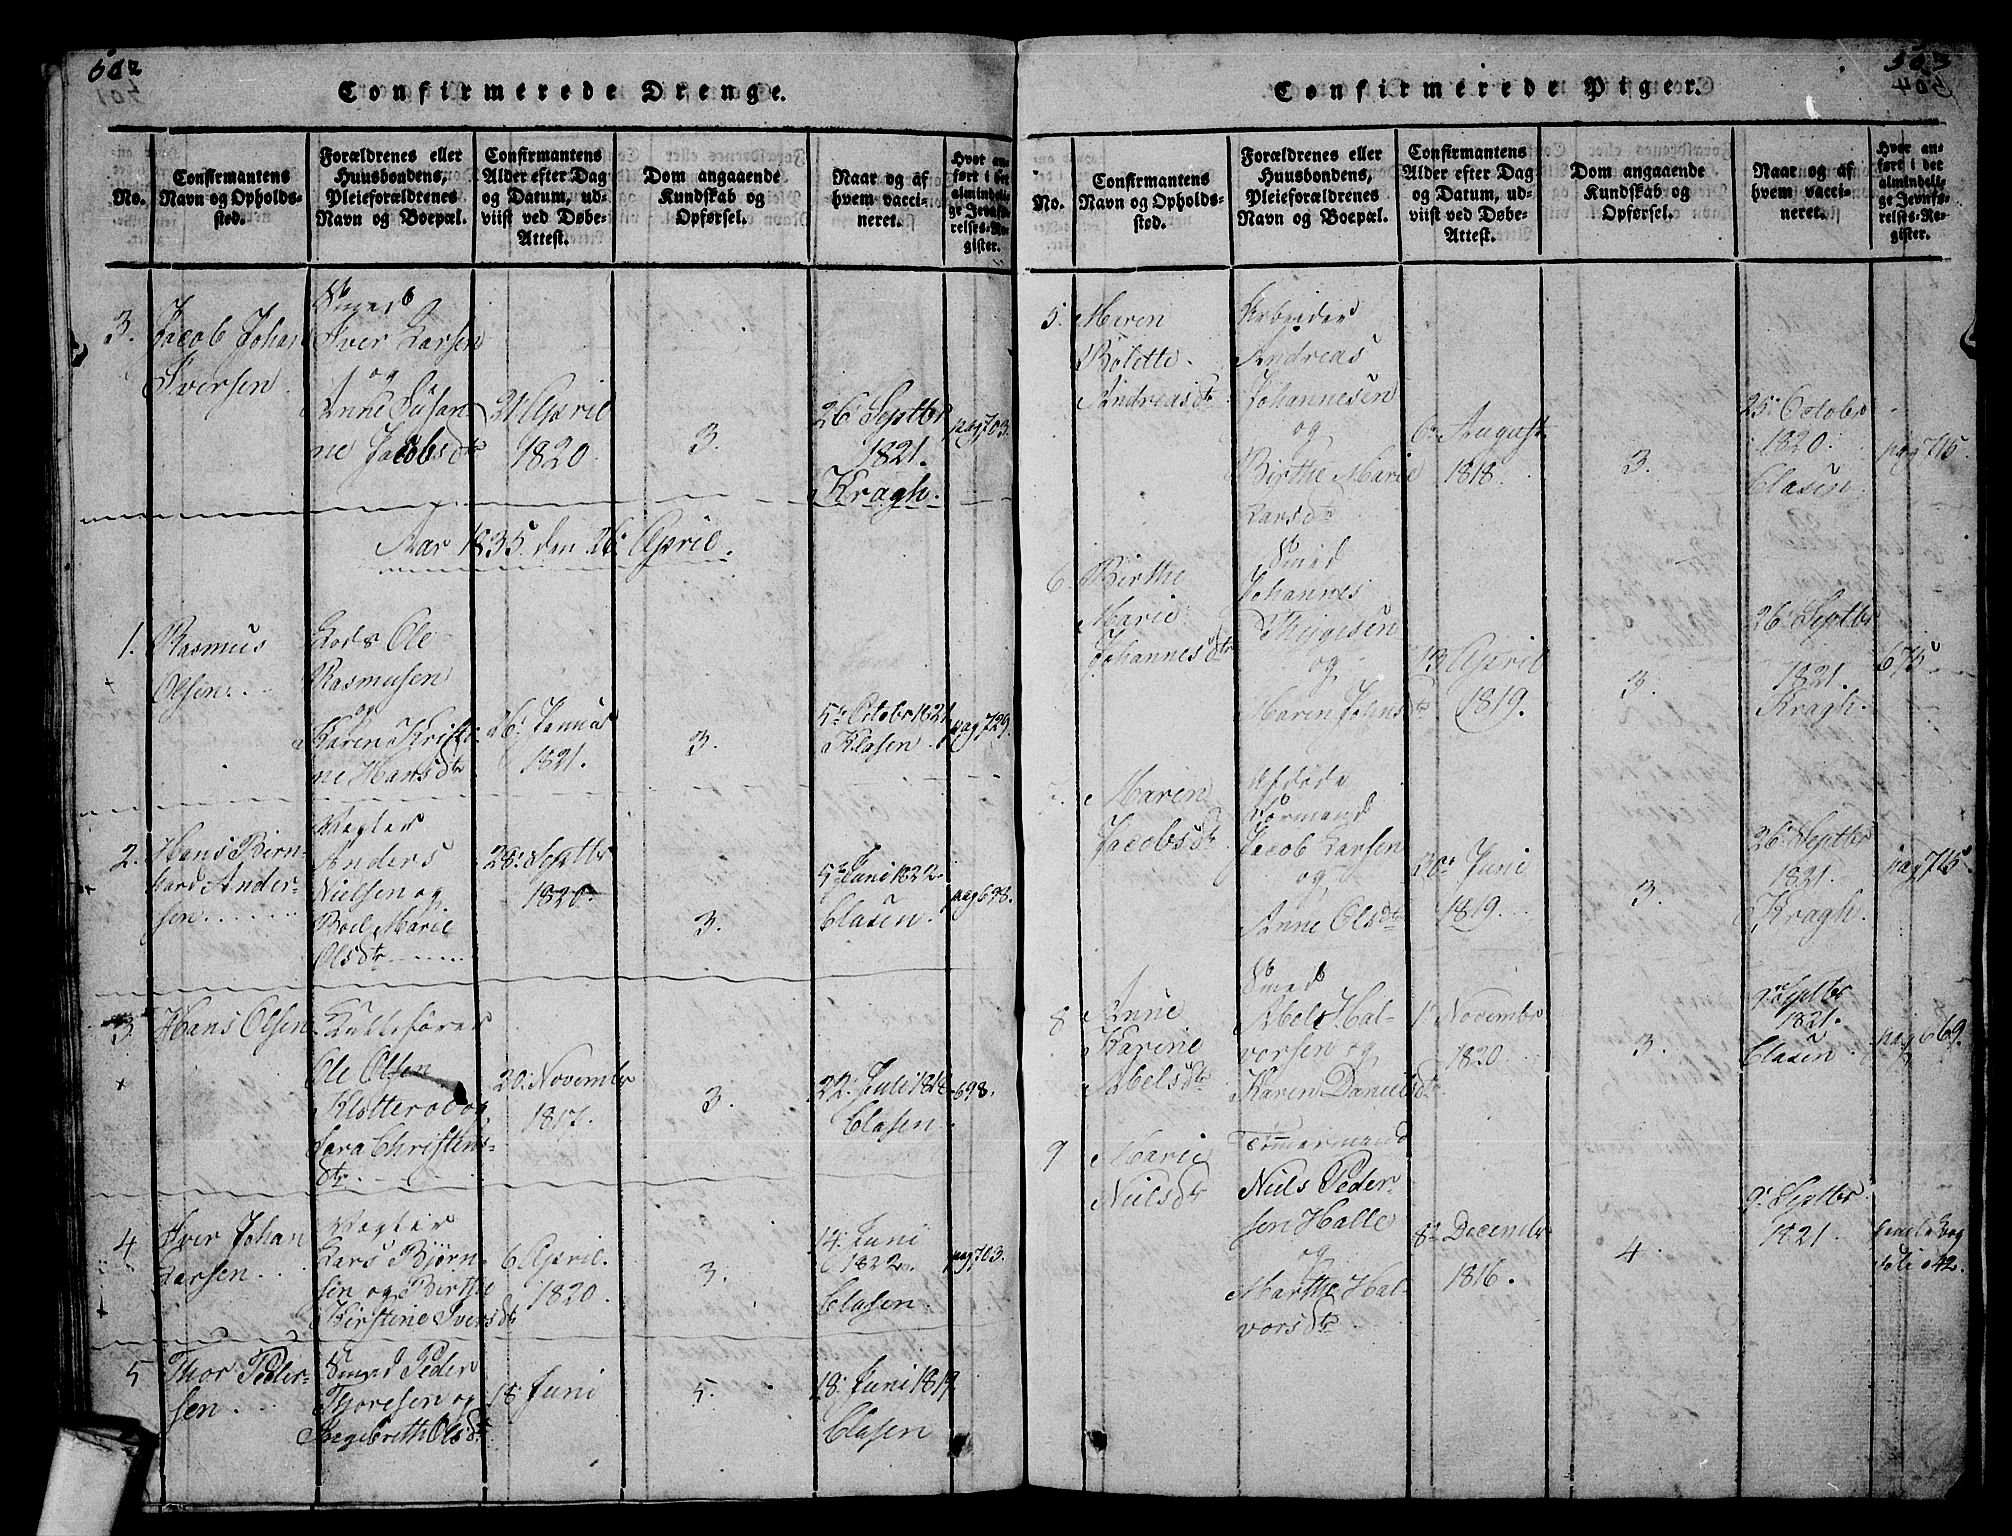 502
Confirmerede Drenge.
No.
Confirmantens
Navn og Opholds-
sted.
Forældrenes eller
Huusbondens,
Pleieforældrenes
Navn og Boepæl.
Confirmantens
Alder efter Dag
og Datum, ud-
viist ved Døbe-
Attest.
Dom angaaende
Kundskab og
Opførsel.
Naar og af
hvem vacci-
neret.
Hvor an-
ført i det
almindeli-
ge Jevnfø-
relses-Re-
gister.
3.
Jacob Johan
Iversen
Smed
Iver Larsen
og
Anne Susan-
ne Jacobsdtr
21 April
1820
3.
26. Septbr
1821.
Kragh.
pag 703.
Aar 1835 den 26. April.
1.
Rasmus
Olsen
Lods Ole
Rasmusen
og
Karen Kristi-
ne Hansdtr
26. Januar
1821.
3.
5. Octobr 1821
Klasen
pag 729.
2.
Hans Birn-
hard Ander-
sen
Vegter
Anders
Nielsen og
Boel Marie
Olsdtr
28. Septbr
1820
3.
5. Juni 1822
Clasen.
pag 698.
3
Hans Olsen
Kullefører
Ole Olsen
Klotterød og
Sara Christens-
dtr
20. Novembr
1817.
3.
22. Juli 18
Clasen
698.
4
Iver Johan
Larsen
Vegter
Lars Bjørn-
sen og Berthe
Kirstine Iversdtr
6 April
1820
3.
14. Juni
1822.
Clasen.
pag 703.
5
Thor Peder-
sen
Smed Peder
Thoresen og
Ingebreth Olsdtr
18 Juni
5.
18. Juni 1819
Clasen
503
504
Confirmerede Piger.
No.
Confirmantens
Navn og Opholds-
sted.
Forældrenes eller
Huusbondens,
Pleieforældrenes
Navn og Boepæl.
Confirmantens
Alder efter Dag
og Datum, ud-
viist ved Døbe-
Attest.
Dom angaaende
Kundskab og
Opførsel.
Naar og af
hvem vacci-
neret.
Hvor an-
ført i det
almindeli-
ge Jevnfø-
relses-Re-
gister.
5.
Meren
Boldtte
Andreasdtr
Arbeider
Andreas
Johannesen
og
Birthe Marie
Larsdtr
6. August
1818.
3.
25. Octobr
1820.
Clasen
pag 715.
6
Birthe
Marie
Johannesdtr
Smed
Johannes
Thygesen
og
Maren Johnsdtr
13 April
1819.
3.
26. Septbr
1821.
Kragh.
675
7.
Maren
Jacobsdtr
Afdøde
Formand
Jacob Larsen
og
Anne Olsdtr
30. Juni
1819
3.
26. Septbr
1821.
Kragh.
pag 715
8
Anne
Karine
Abelsdtr
Smed
Abel Hal-
vorsen og
Karen Danielsdtr
1. Novembr
1820
3.
9. Septbr
1821.
Clasen
pag 669.
9
Marie
Nielsdtr
Tømmermand
Niels Peder-
sen Halle
og
Marthe Hal-
vorsdtr
8. Decembr
1816.
4.
9. Septbr
1821
gamle bog
folio 42.